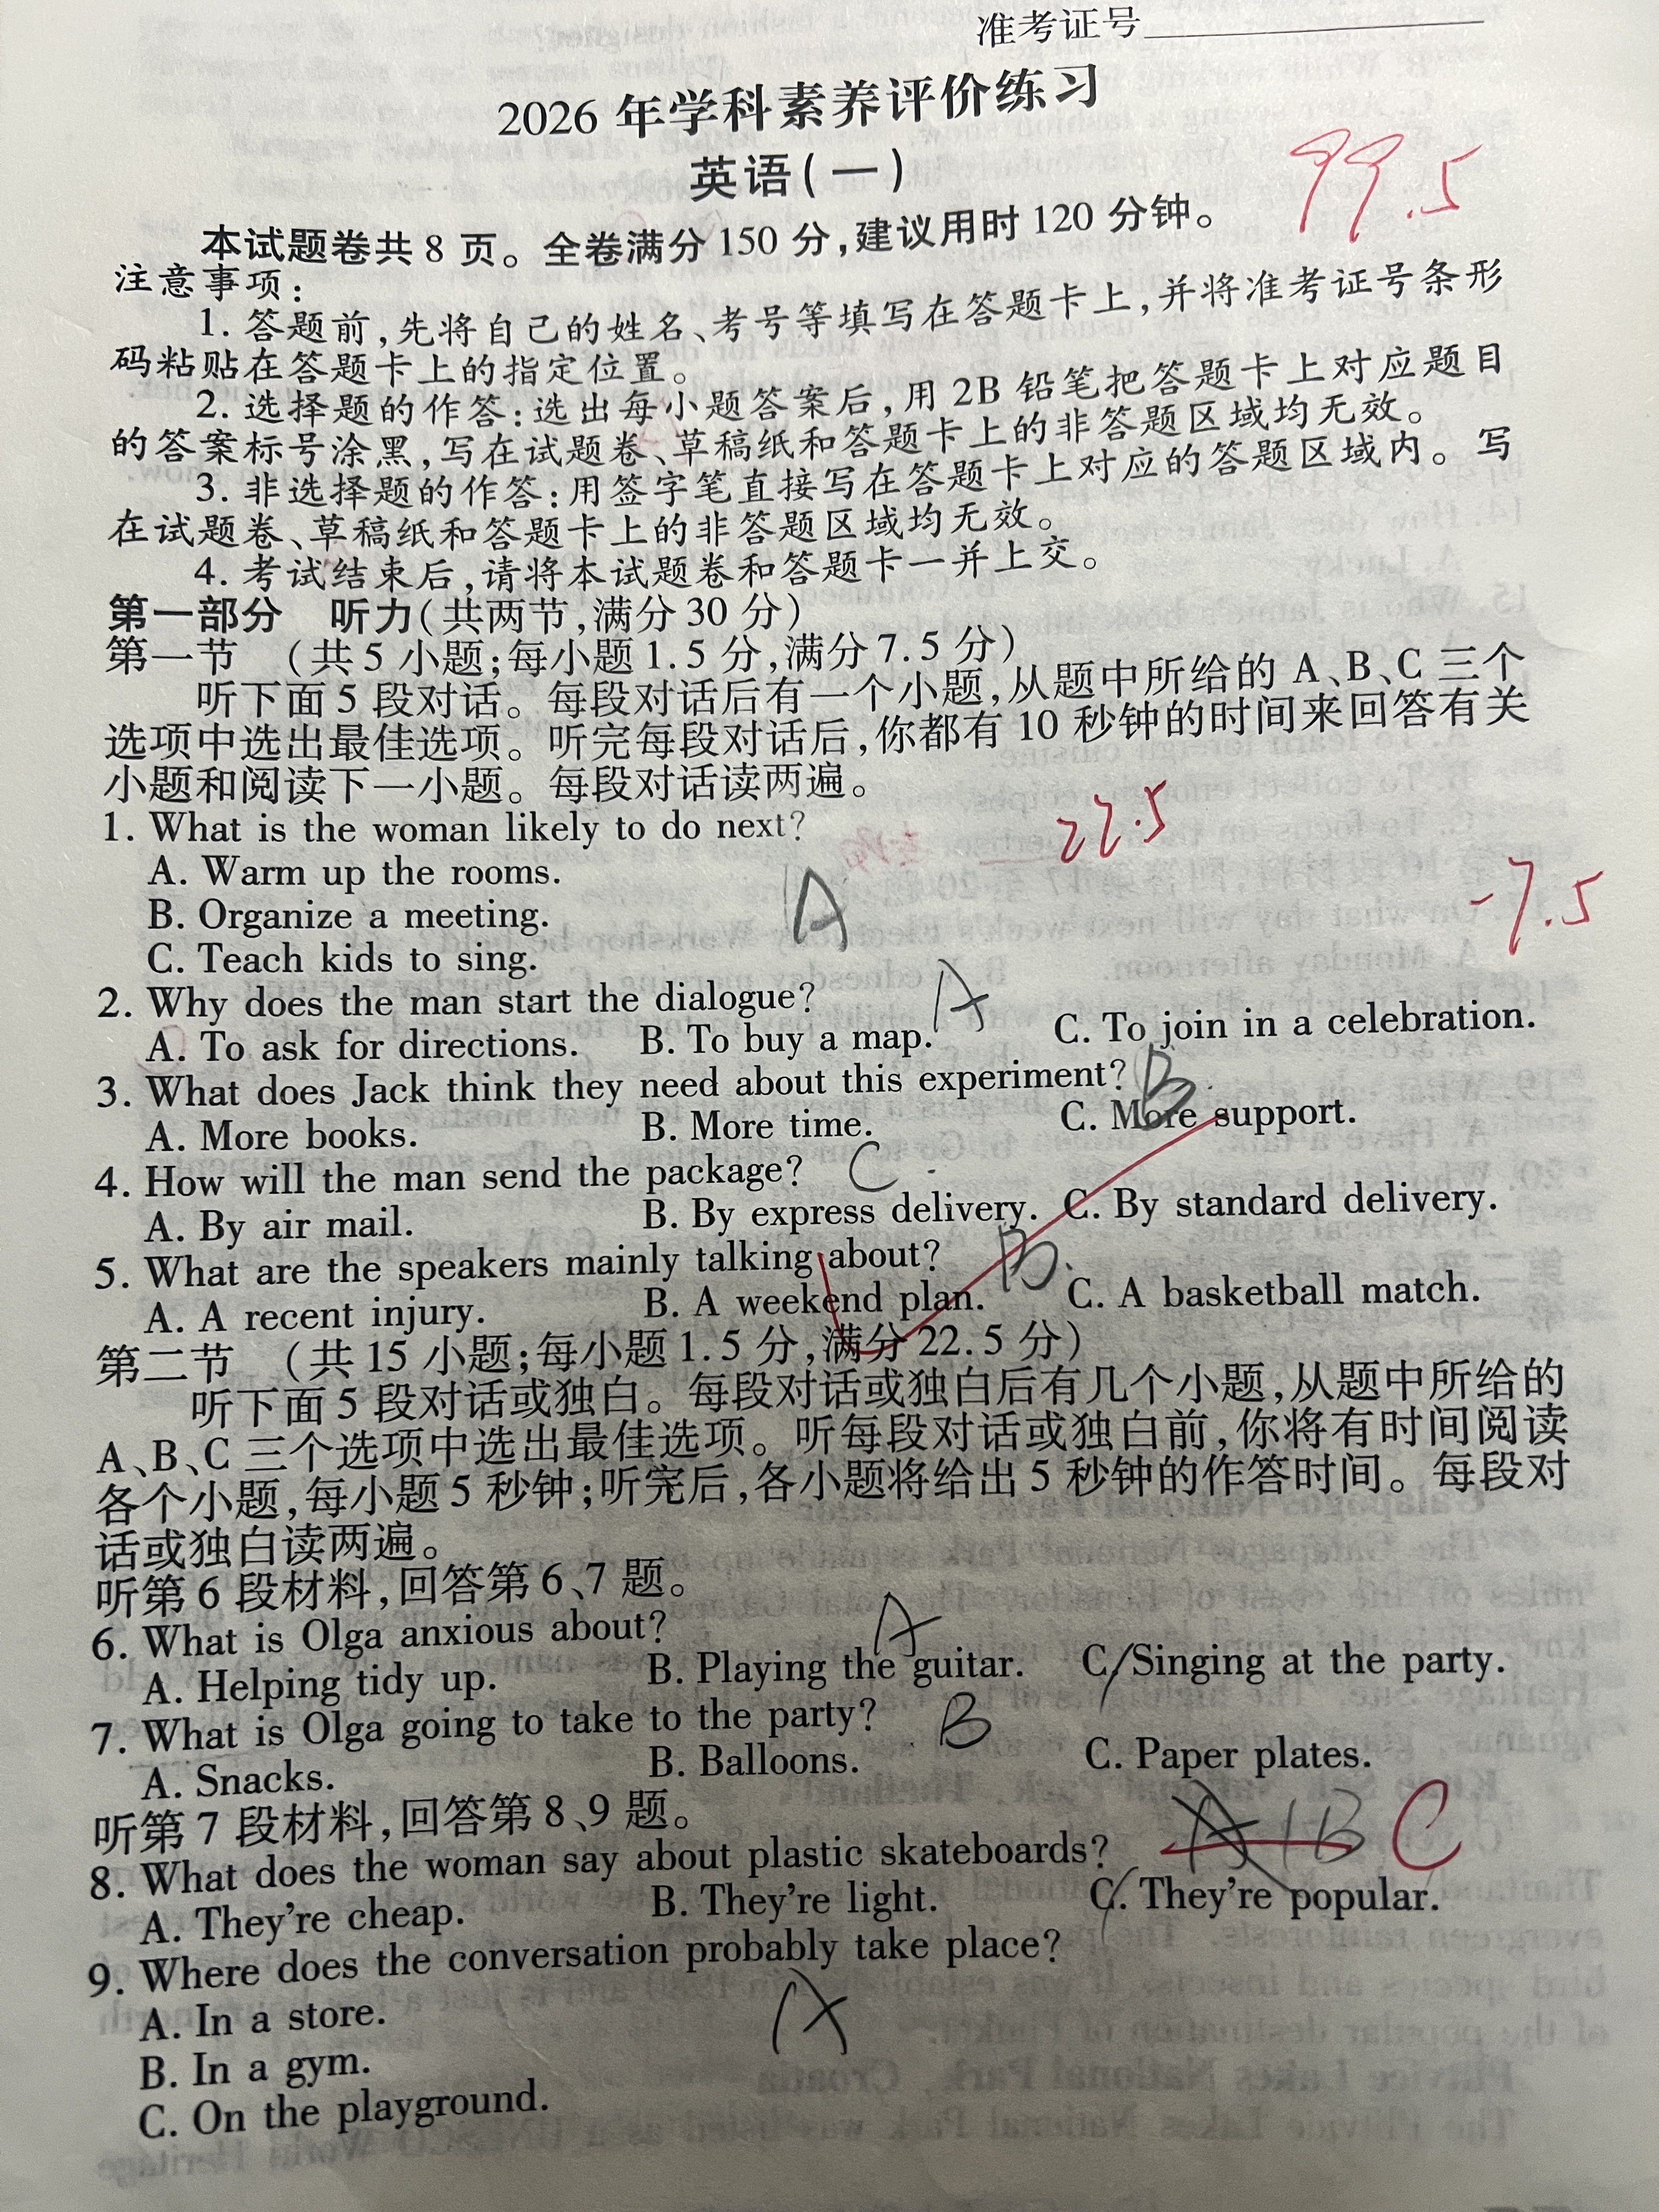 准考证号
2026年学科素养评价练习
英语(一)
99.5
本试题卷共8页。全卷满分150分,建议用时120分钟。
注意事项:
1. 答题前,先将自己的姓名、考号等填写在答题卡上,并将准考证号条形
码粘贴在答题卡上的指定位置。
2. 选择题的作答:选出每小题答案后,用2B铅笔把答题卡上对应题目
的答案标号涂黑,写在试题卷、草稿纸和答题卡上的非答题区域均无效。
3. 非选择题的作答:用签字笔直接写在答题卡上对应的答题区域内。写
在试题卷、草稿纸和答题卡上的非答题区域均无效。
4. 考试结束后,请将本试题卷和答题卡一并上交。
第一部分 听力(共两节,满分30分)
第一节 (共5小题;每小题1.5分,满分7.5分)
听下面5段对话。每段对话后有一个小题,从题中所给的A、B、C三个
选项中选出最佳选项。听完每段对话后,你都有10秒钟的时间来回答有关
小题和阅读下一小题。每段对话读两遍。
1. What is the woman likely to do next? 22.5
A. Warm up the rooms. -7.5
B. Organize a meeting. A
C. Teach kids to sing.
2. Why does the man start the dialogue? A
A. To ask for directions. B. To buy a map. C. To join in a celebration.
3. What does Jack think they need about this experiment? B
A. More books. B. More time. C. More support.
4. How will the man send the package? C
A. By air mail. B. By express delivery. C. By standard delivery.
5. What are the speakers mainly talking about? B
A. A recent injury. B. A weekend plan. C. A basketball match.
第二节 (共15小题;每小题1.5分,满分22.5分)
听下面5段对话或独白。每段对话或独白后有几个小题,从题中所给的
A、B、C三个选项中选出最佳选项。听每段对话或独白前,你将有时间阅读
各个小题,每小题5秒钟;听完后,各小题将给出5秒钟的作答时间。每段对
话或独白读两遍。
听第6段材料,回答第6、7题。
6. What is Olga anxious about? A
A. Helping tidy up. B. Playing the guitar. C. Singing at the party.
7. What is Olga going to take to the party? B
A. Snacks. B. Balloons. C. Paper plates.
听第7段材料,回答第8、9题。
8. What does the woman say about plastic skateboards? A B C
A. They're cheap. B. They're light. C. They're popular.
9. Where does the conversation probably take place?
A. In a store. A
B. In a gym.
C. On the playground.